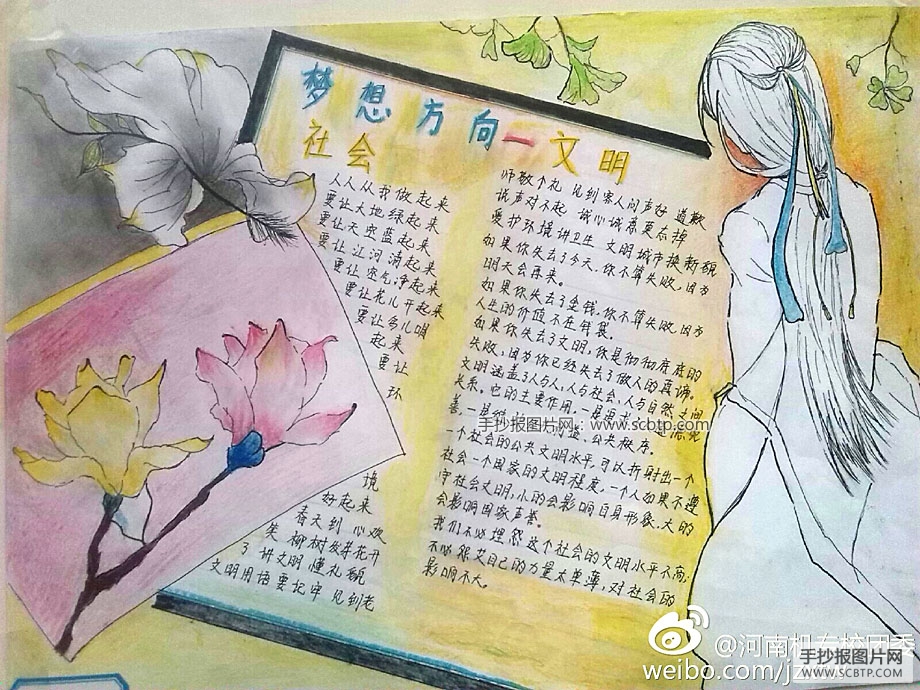 梦想方向一文明
社会
人人从我做起来
要让大地绿起来
要让天空蓝起来
要让江河清起来
要让空气净起来
要让花儿开起来
要让鸟儿唱
起来
要让
环
境
好起来
春天到 心欢
笑 柳树发芽花开
了 讲文明 懂礼貌
文明用语要记牢 见到老
师敬个礼 见到客人问声好 道歉
说声对不起 诚心诚意要忘掉
爱护环境讲卫生 文明城市换新颜
如果你失去了今天,你不算失败,因为
明天会再来。
如果你失去了金钱,你不算失败,因为
人生的价值不在钱袋。
如果你失去了文明,你是彻彻底底的
失败,因为你已经失去了做人的真谛。
文明涵盖了人与人,人与社会,人与自然之间
关系,它的主要作用,一是
善,一是 公共秩序。
一个社会的公共文明水平,可以折射出一个
社会一个国家的文明程度,一个人如果不遵
守社会文明,小的会影响自身形象,大的
会影响国家声誉。
我们不必埋怨这个社会的文明水平不高;
不必恨艾自己的力量太单薄,对社会的
影响不大。
手抄报图片网:www.scbtp.com
@河南机专校团委
weibo.com/jz
手抄报图片网
WWW.SCBTP.COM